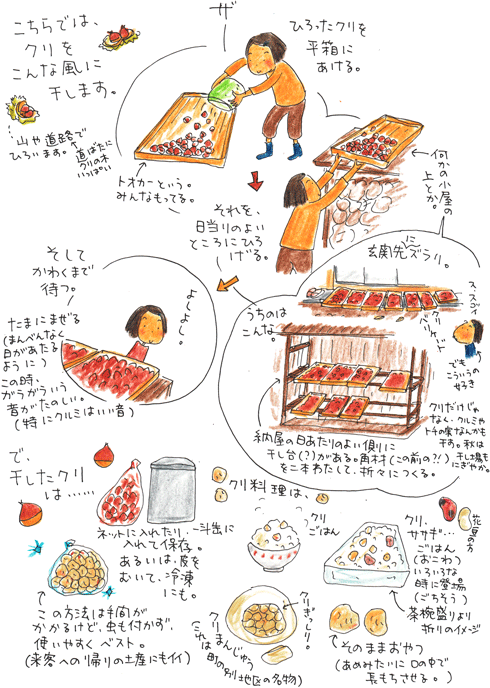 こちらでは、
クリを
こんな風に
干します。
山や道路で
ひろいます。
道ばたに
クリの木
いっぱい
ザ
ひろったクリを
平箱に
あける。
トオカーという。
みんなもってる。
それを、
日当りのよい
ところにひろ
げる。
何かの小屋の
上とか。
玄関先にズラリ。
うちのは
こんな。
ス、スゴイ
クリ
パレット
でも
こういうの
せるき
クリだけじゃ
なく、クルミや
トチの実なんかも
干す。秋は
干し場も
にぎやか。
納屋の日あたりのよい側に
干し台(?)がある。角材(この前の?!)
を二本わたして、折々につくる。
そして
かわくまで
待つ。
よしよし。
たまにまぜる
(まんべんなく
日があたる
ように)
この時、
ガラガラいう
音がたのしい。
(特にクルミはいい音)
で、
干したクリ
は……
ネットに入れたり、一斗缶に
入れて保存。
あるいは、皮を
むいて、冷凍
にも。
この方法は手間が
かかるけど、虫も付かず、
使いやすくベスト。
(来客への帰りの土産にもイイ)
クリ料理は、
クリ
ごはん
クリ、
ササギ…
ごはん
(おこわ)
いろいろな
時に登場
(ごちそう)
花豆の方
茶碗盛りより
折りのイメージ
クリぎっしり。
クリまんじゅう
(これは
町の別地区の名物)
そのままおやつ
(あめみたいに口の中で
長もちさせる。)